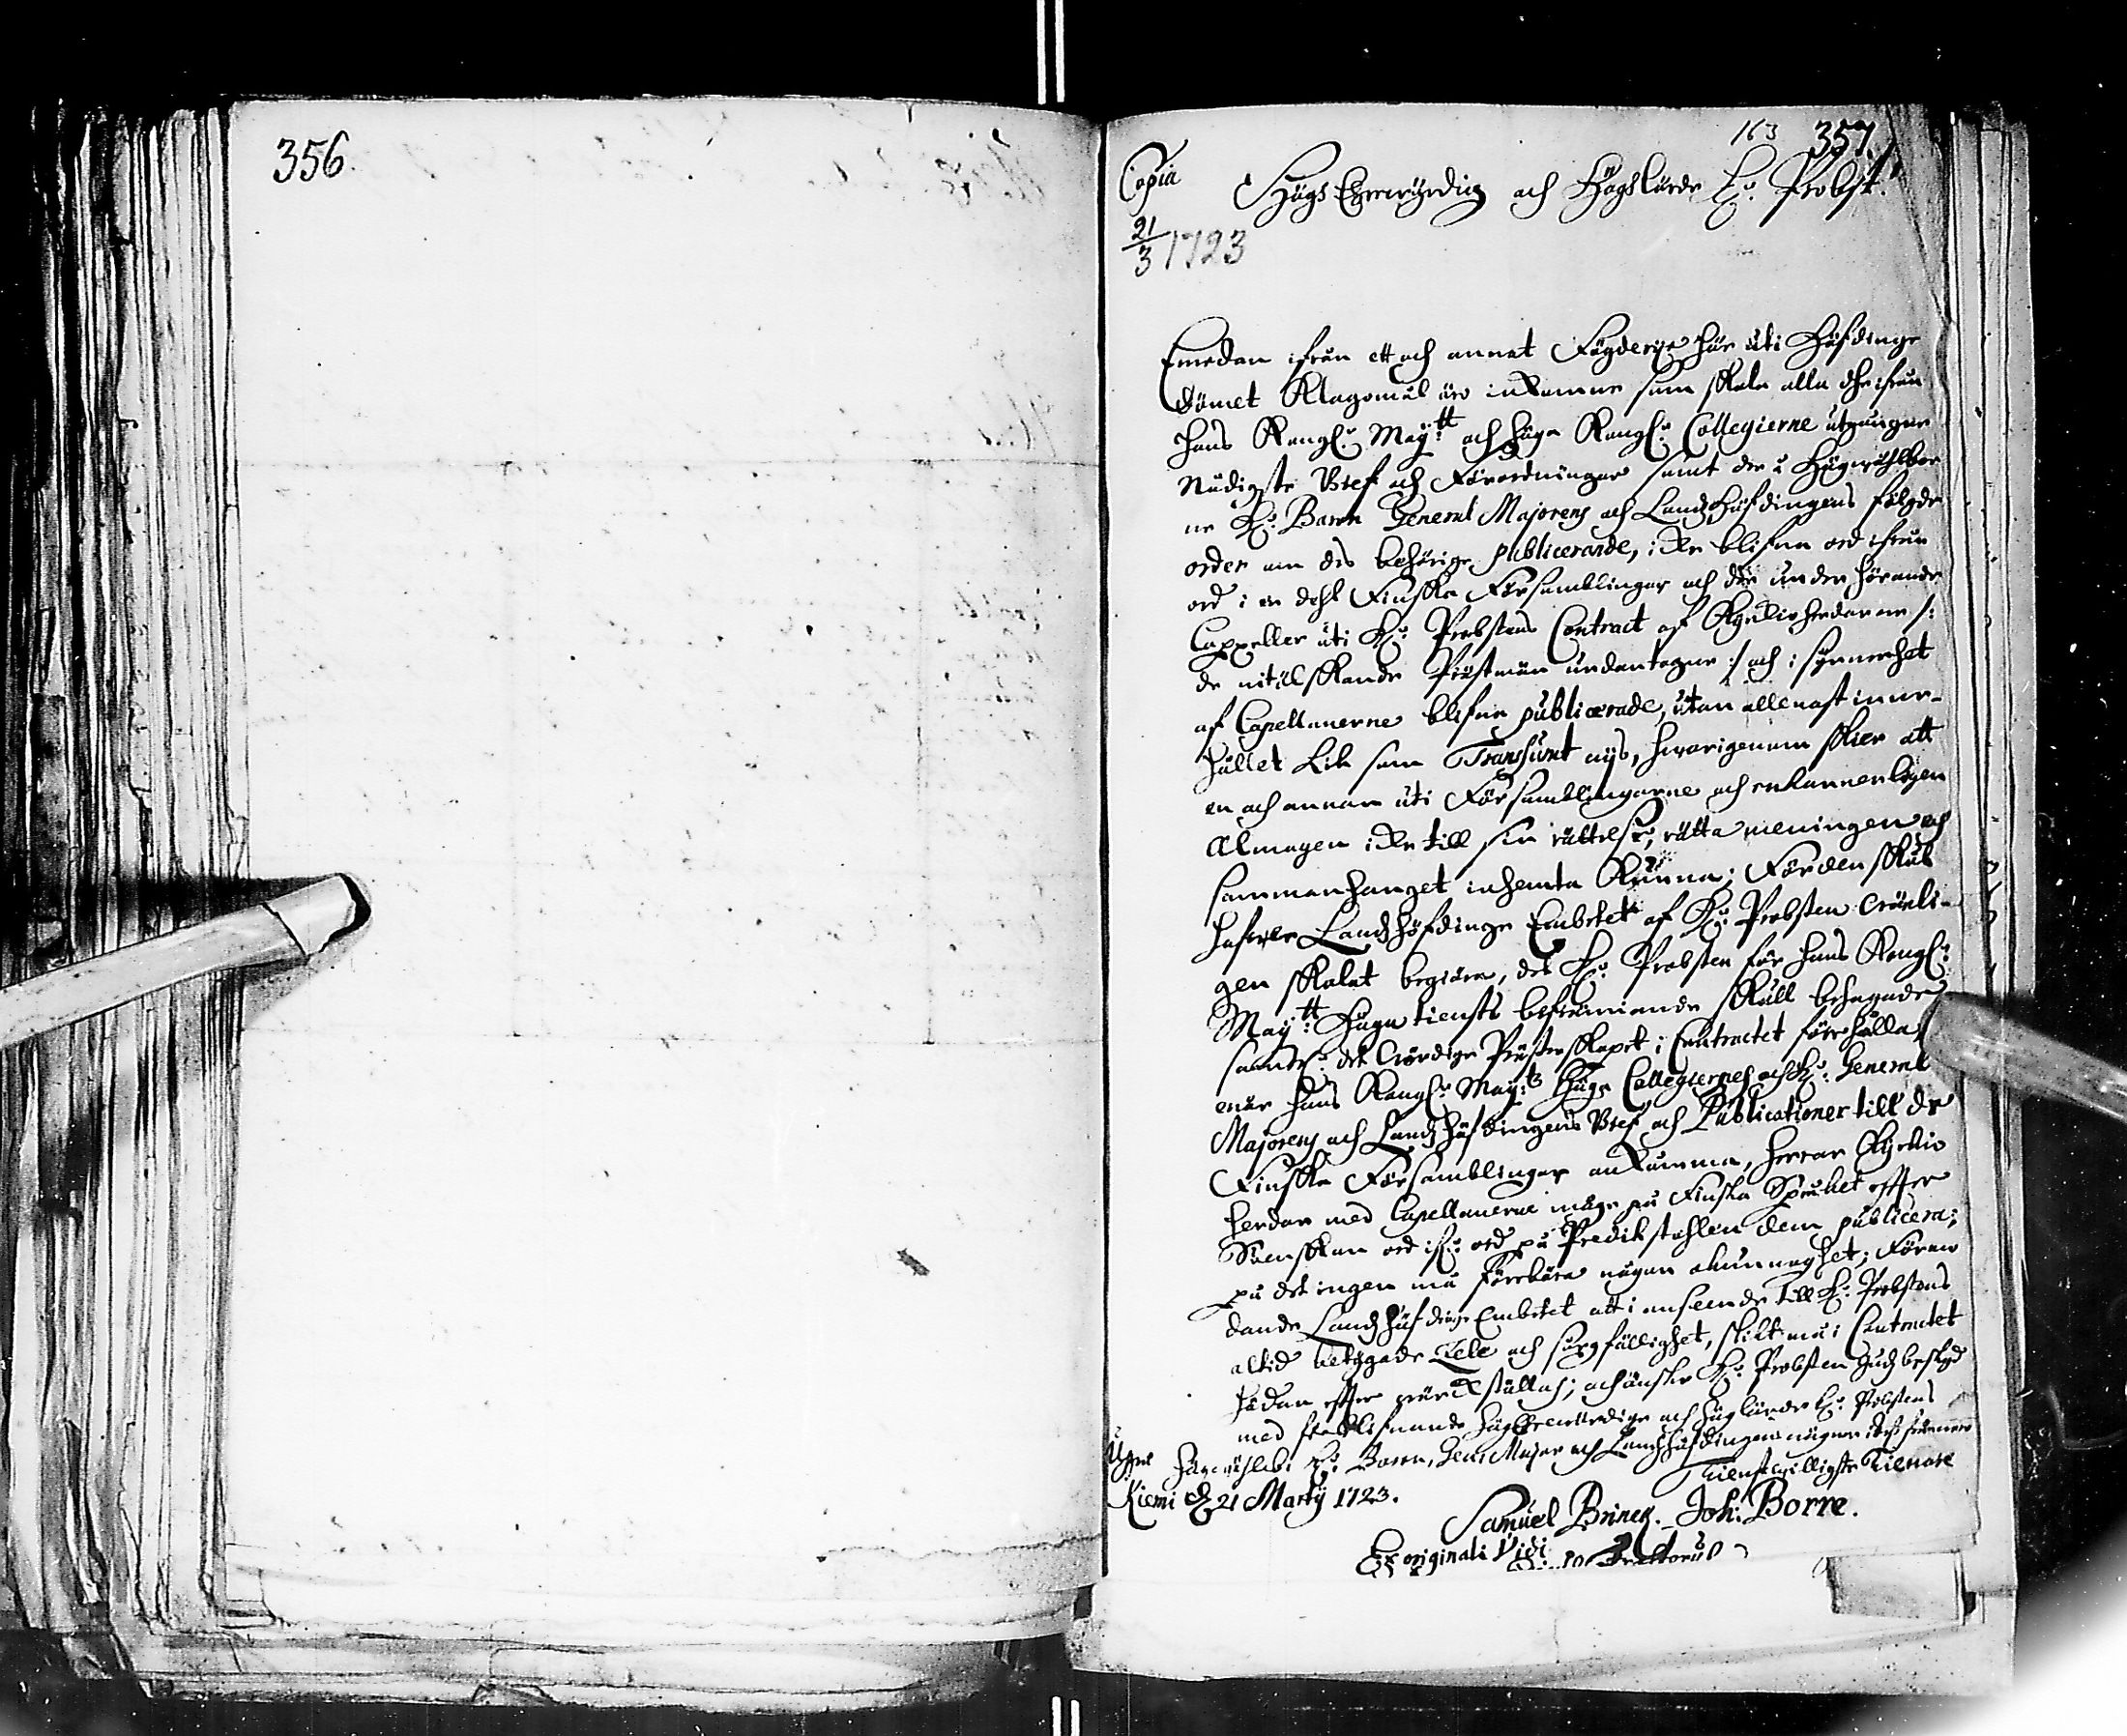 356.
163 357.
Copia
Högs Ehrewyrdig och Höglärde H:r Probst.
21/3 1723
Emedan ifrån ett och annat Fögderije här uti Höfdinge
dömet Klagomål äro inkomne som skola alla dhe ifrån
Hans Kongl: May:tt och höga Kongl: Collegierne utgångne
Nådigste Bref och Förordningar samt der å Högwählbor
ne H:r Baron General Majorens och Landzhöfdingens fölgde
order om des behörige publicerande, icke blifwa ord ifrån
ord i en dehl Finska Församblingar och der under hörande
Cappeller uti H:r Probstens Contract af Kyrkioherdarne /:
de nitälskande Prästmän undantagne :/ och i synnerhet
af Capellanerne blifwa publicerade, utan allenast inne-
hållet Lik som Transsumt wijs, hwarigenom skier att
en och annan uti Församblingarne och enkannerligen
Almogen icke till sin rättelse, rätta meningen och
sammanhanget inhemta kunna; Fördenskull
hafwer Landzhöfdinge Embetet af H:r Probsten
gen skolat begiära, det H:r Probsten för Hans Kongl:
May:tt Höga tiensts befrämiande skull behagade
samtl: det Wördige Prästerskapet i Contractet förehålla,
når Hans Kongl: May:tz Höga Collegiernes och H:r General
Majorens och Landzhöfdingens Bref och Publicationer till de
Finska Församblingar ankomma, herrar Kyrkio
herdar med Capellanerne måge på Finska Språket efter
Swenskan ord ifrå ord på Predikstohlen dem publicera;
på det ingen må förebära någon okunnoghet; Förmo
dande Landzhöfdinge Embetet att i anseende till H:r Probstens
altid betygade Zele och sorgfällighet, slikt må i Contractet
hädan efter wärckställas; och önskar H:r Probsten Gudz beskyd
med förblifwande Högehrewördige och Höglärde H:r Probstens
Högwählb: H:r Baron, Gen: Major och Landzhöfdingens
Tienstwilligste Tienare
Kiemi d 21 Martij 1723.
Samuel Briner. Joh: Borre.
Ex originali Vidi